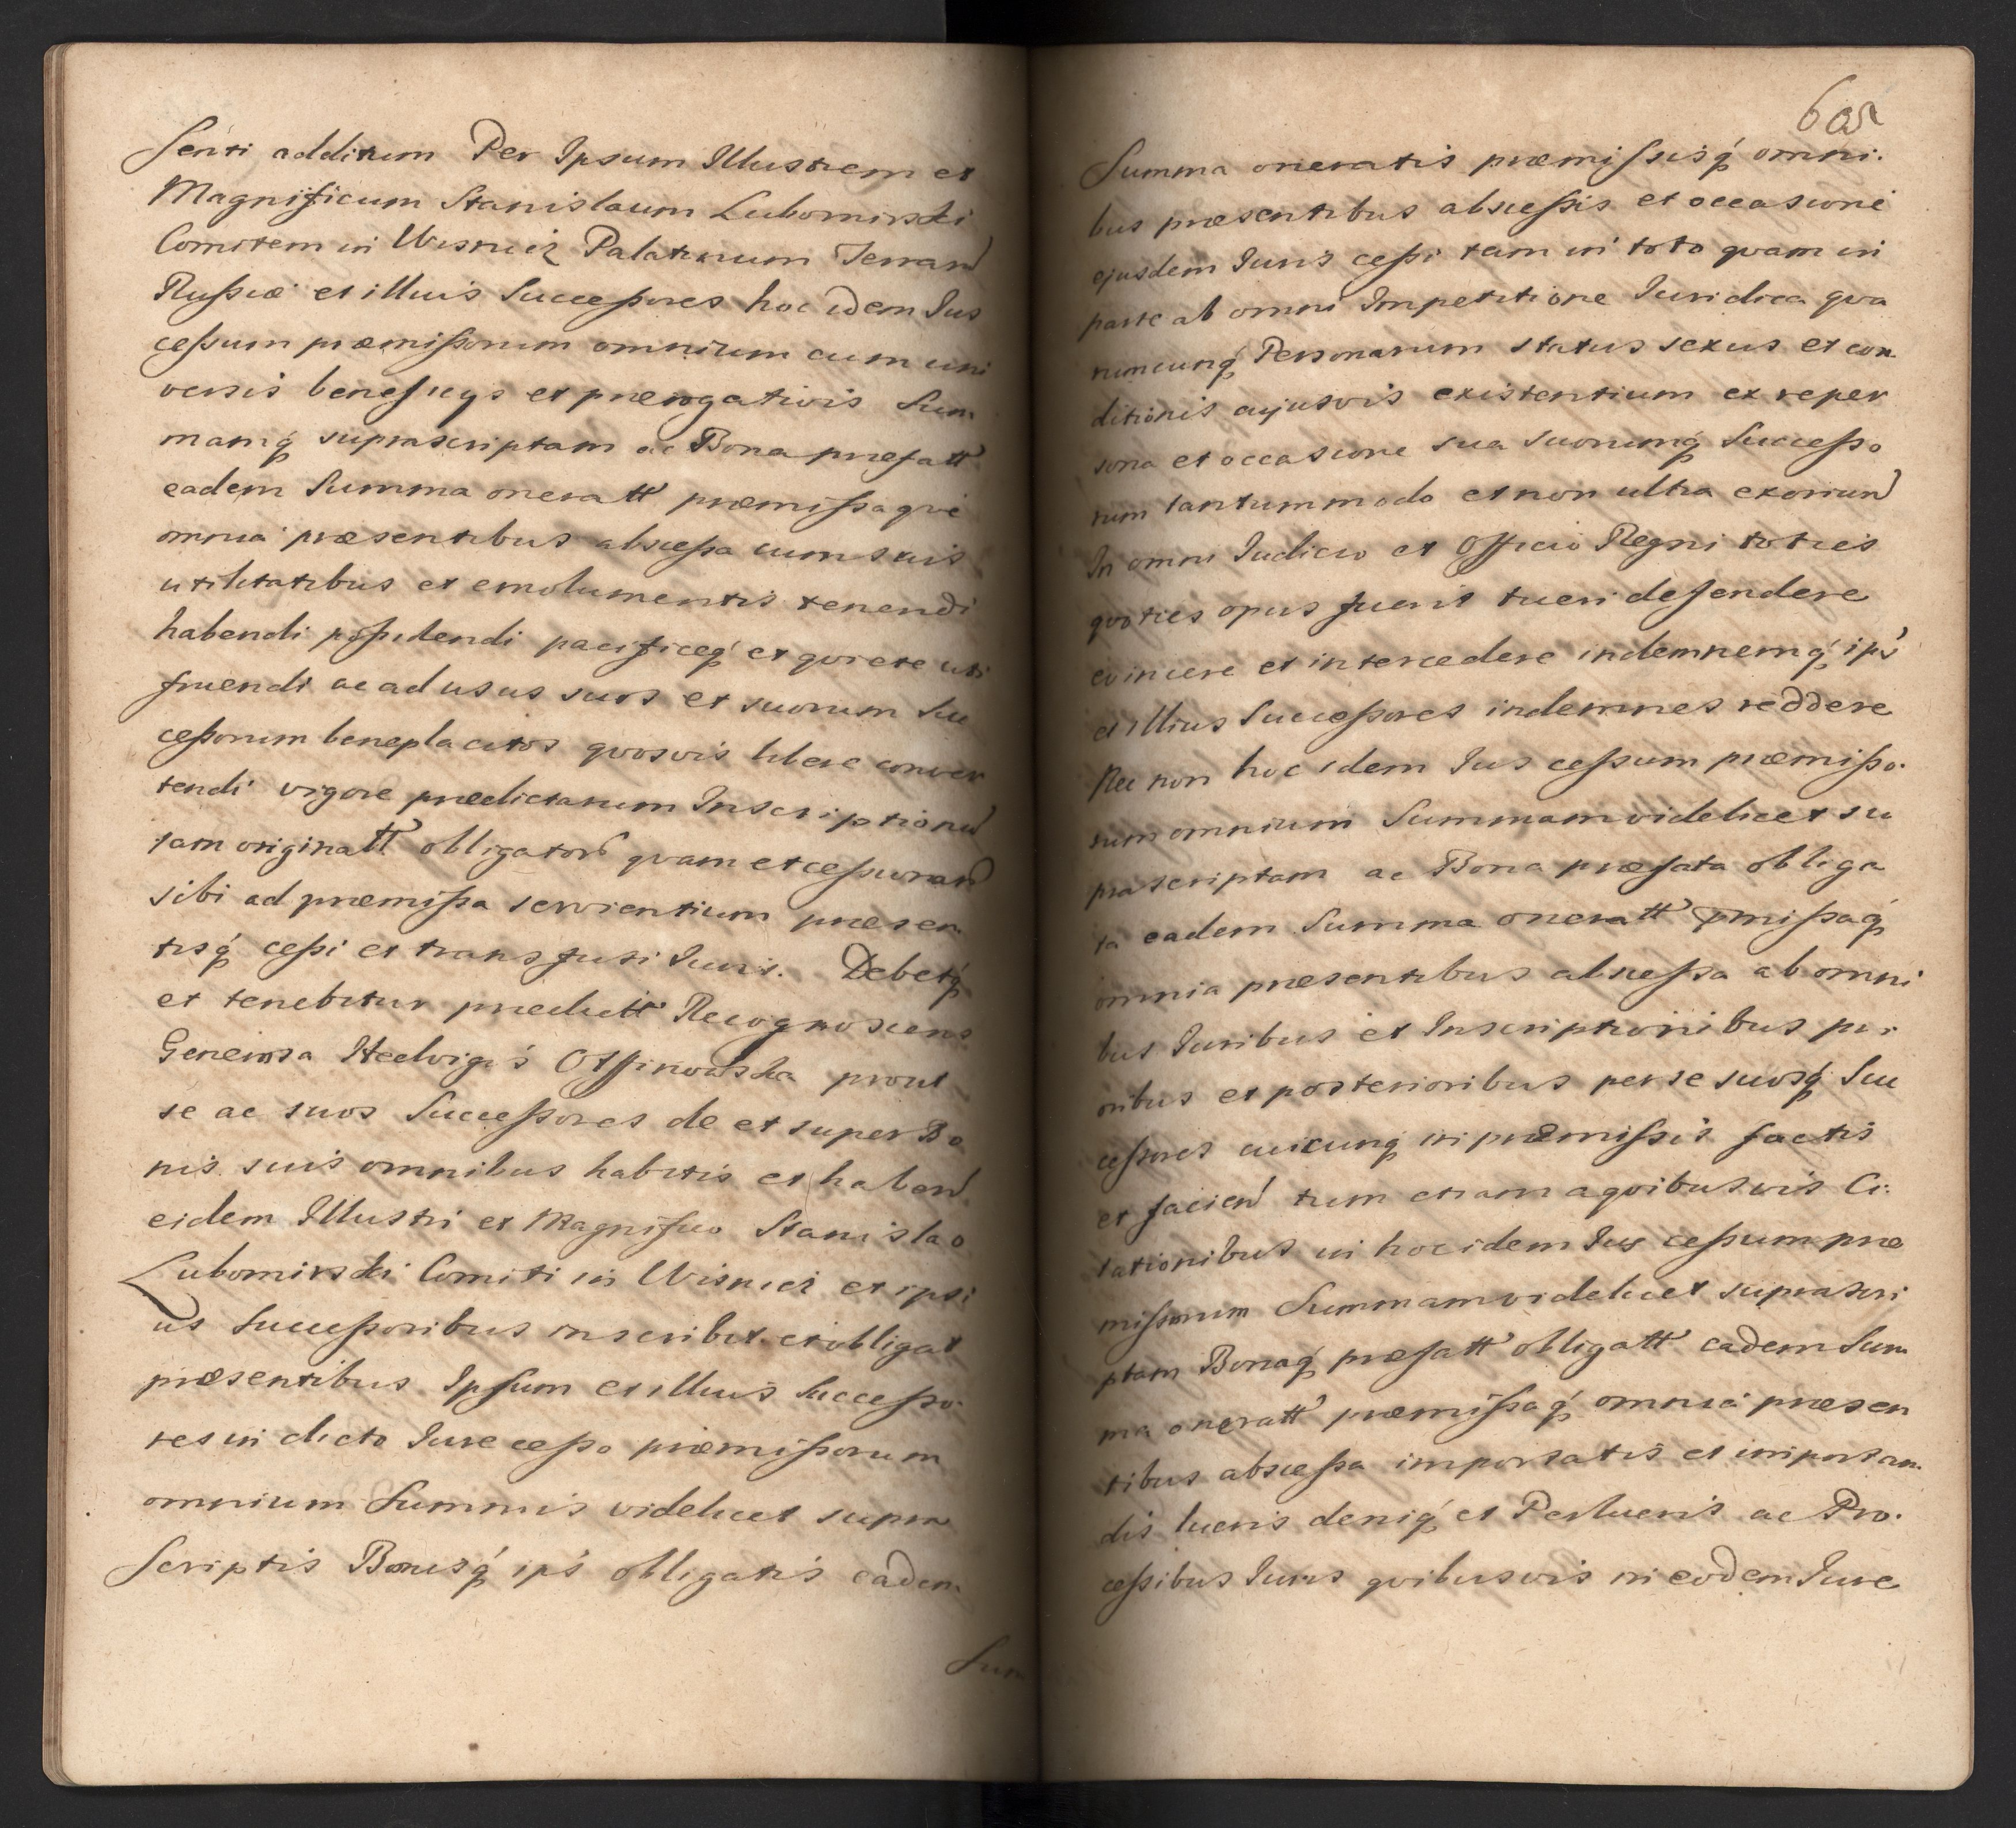 senti additum Per Ipsum Illustrem et
Magnificum Stanislaum Lubomirski
Comitem in Wisnicz Palatinum Terrarū
Russiæ et illius Successores hoc idem Jus
cessum præmissorum omnium cum uni
versis beneficijs et prærogativis Sum
mamq́ suprascriptam ac Bona præfatt
eadem Summa oneratt præmissaqve
omnia præsentibus abscessa cum suis
utilitatibus et emolumentis tenendi
habendi possidendi pacificeq́ et qviete uti
fruendi ac ad usus suos et suorum Suc
cessorum beneplacitos qvosvis libere conver
tendi vigore prædictarum Inscriptionū
tam originatt obligatorū qvam et cessorarū
sibi ad præmissa servientium præsen
tisq́ cessi et transfusi Juris. Debetq́
et tenebitur prædictt Recognoscens
Generosa Hedvigis prout
se ac suos Successores de et super Bo
nis suis omnibus habitis et haben
eidem Illustri et Magnifico Stanislao
Lubomirski Comiti in Wisnicz et ipsi
us Successoribus inscribit et obligat
præsentibus Ipsum et illius Successo
res in dicto Jure cesso præmissorum
omnium Summis videlicet supra
scriptis Bonisq́ ips obligatis eadem
Sum
605
Summa oneratis præmissisq́ omni.
bus præsentibus abscessis et occasione
ejusdem Juris cessi tam in toto qvam in
parte ab omni Impetitione Juridica qva
rumcunq́ Personarum status sexus et con
ditionis cujusvis existentium ex reper
sona et occasione sua suorumq́ Successo
rum tantummodo et non ultra exoriun
In omni Judicio et Officio Regni toties
qvoties opus fuerit tueri defendere
evincere et intercedere indemnemq́ ips
et illius Successores indemnes reddere
Nec non hoc idem Jus cessum præmisso.
rum omnium Summam videlicet su
prascriptam ac Bona præfata obliga
ta eadem Summa oneratt pmissaq́
omnia præsentibus abscessa ab omni
bus Juribus et Inscriptionibus pri
oribus et posterioribus per se suosq́ Suc
cessores cuicunq́ in præmissis factis
et facien tum etiam a qvibusvis Ci.
tationibus in hoc idem Jus cessum præ
missorum Summam videlicet suprascri
ptam Bonaq́ præfatt obligatt eadem Sum
ma oneratt præmissaq́ omnia præsen
tibus abscessa importatis et importan
dis lucris deniq́ et Perlucris ac Pro.
cessibus Juris qvibusvis in eodem Jure